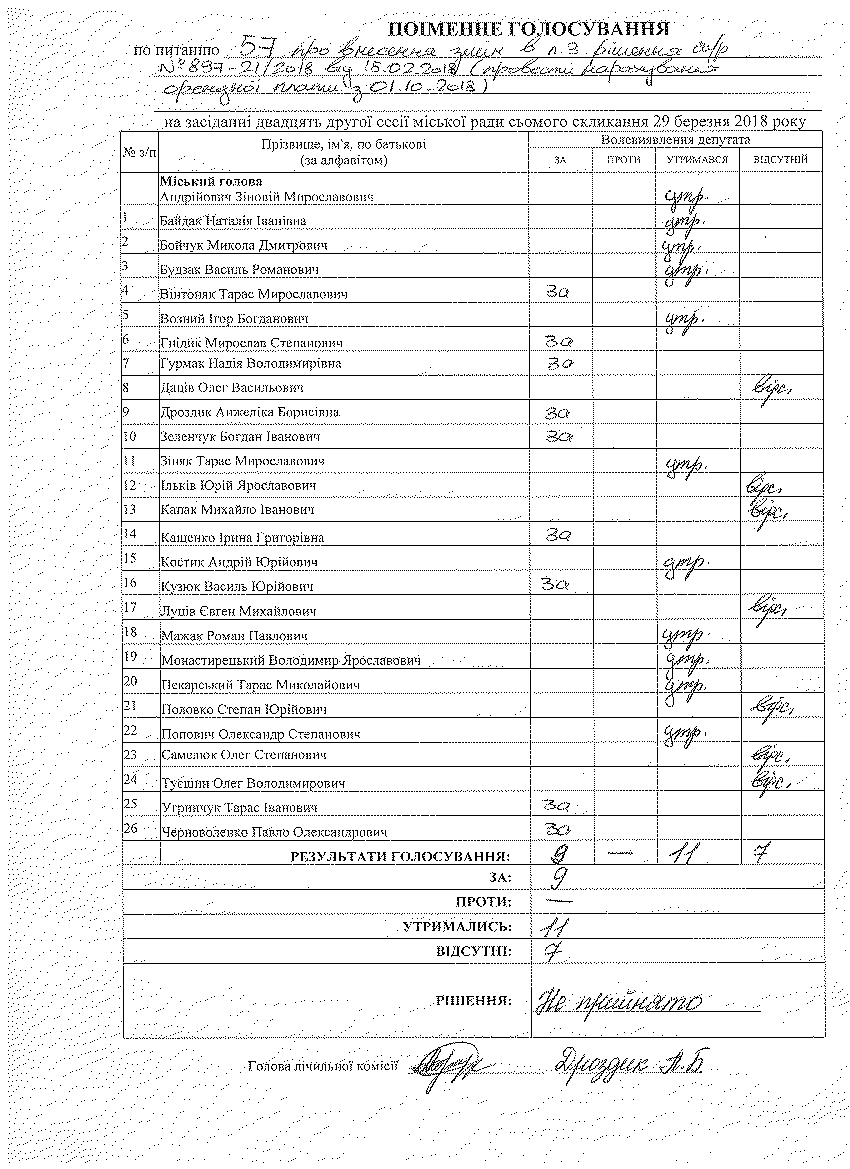 ПОІМЕННЕ ГОЛОСУВАННЯ
по питанню 57 про внесення змін в п.3 рішення м/р
№897-21/2018 від 15.02.2018 (провести нарахування
орендної плати з 01.10.2018)
на засіданні двадцять другої сесії міської ради сьомого скликання 29 березня 2018 року
№ з/п Прізвище, ім'я, по батькові (за алфавітом) Волевиявлення депутата
ЗА ПРОТИ УТРИМАВСЯ ВІДСУТНІЙ
Міський голова
Андрійович Зіновій Мирославович утр.
1 Байдак Наталія Іванівна утр.
2 Бойчук Микола Дмитрович утр.
3 Будзак Василь Романович утр.
4 Вінтоняк Тарас Мирославович За
5 Возний Ігор Богданович утр.
6 Гнідик Мирослав Степанович За
7 Гурмак Надія Володимирівна За
8 Даців Олег Васильович відс.
9 Дроздик Анжеліка Борисівна За
10 Зеленчук Богдан Іванович За
11 Зіняк Тарас Мирославович утр.
12 Ільків Юрій Ярославович відс.
13 Капак Михайло Іванович відс.
14 Кащенко Ірина Григорівна За
15 Костик Андрій Юрійович утр.
16 Кузюк Василь Юрійович За
17 Луців Євген Михайлович відс.
18 Мажак Роман Павлович утр.
19 Монастирецький Володимир Ярославович утр.
20 Пекарський Тарас Миколайович утр.
21 Половко Степан Юрійович відс.
22 Попович Олександр Степанович утр.
23 Самелюк Олег Степанович відс.
24 Туєшин Олег Володимирович відс.
25 Угринчук Тарас Іванович За
26 Черноволенко Павло Олександрович За
РЕЗУЛЬТАТИ ГОЛОСУВАННЯ: 9 — 11 7
ЗА: 9
ПРОТИ: —
УТРИМАЛИСЬ: 11
ВІДСУТНІ: 7
РІШЕННЯ: Не прийнято
Голова лічильної комісії Дроздик А.Б.